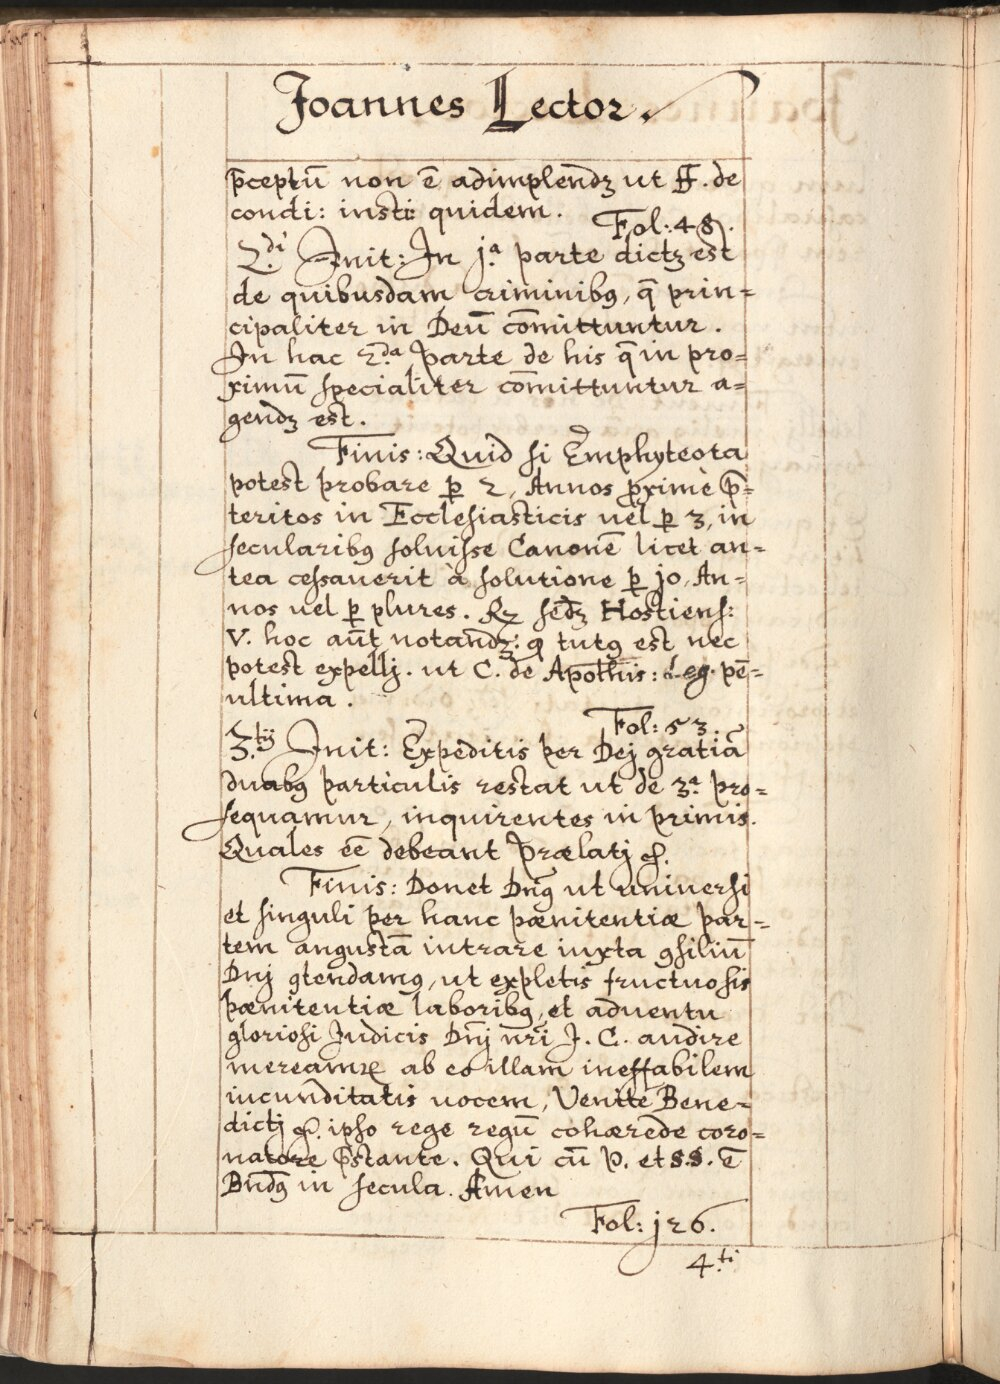 Joannes Lector.
p̄ceptū non ē adimplendʒ ut ff. de
condi: insti: quidem.
Fol: 48.
2.di Init: In j.a parte dictʒ est
de quibusdam criminibꝯ, q̄ prin=
cipaliter in Deū com̄ittuntur.
In hac 2.da Parte de his q̄ in pro=
ximū specialiter com̄ittuntur a=
gendʒ est.
Finis: Quid si Emphyteota
potest probare ꝑ 2, Annos ꝓxime p̄=
teritos in Ecclesiasticis vel ꝑ 3, in
secularibꝯ soluisse Canonē licet an=
tea cessaverit à solutione ꝑ jo, An=
nos vel ꝑ plures. Rʒ sedʒ Hostiens:
V. hoc aūt notandʒ: q tutꝯ est nec
potest expellj. ut C. de Apothis: Leg. pē=
ultima.
Fol: 53.
3.tij Init: Expeditis per Dej gratiā
duabꝯ particulis restat ut de 3.a pro=
sequamur, inquirentes in primis.
Quales eē debeant Prælatj &.
Finis: Donet Dnꝯ ut universi
et singuli per hanc pænitentiæ par=
tem angustā intrare iuxta ꝯsiliū
Dnj ꝯtendamꝯ, ut expletis fructuosis
pænitentiæ laboribꝯ, et adventu
gloriosi Judicis Dnj nr̄i J. C. audire
mereamꝛ ab eo illam ineffabilem
iucunditatis vocem, Venite Bene=
dictj &. ipso rege regū cohærede coro=
natore p̄stante. Qui cū P. et S.S. ē
Bndꝯ in secula. Amen
Fol: j26.
4.ti